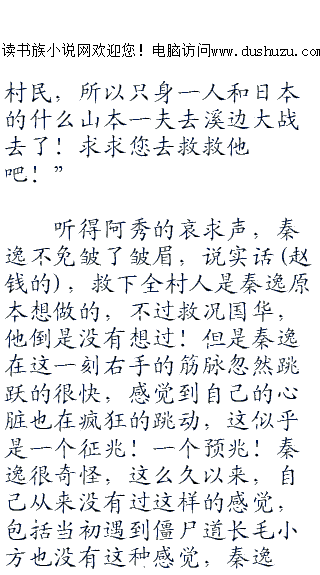 读书族小说网欢迎您！电脑访问www.dushuzu.com
村民，所以只身一人和日本
的什么山本一夫去溪边大战
去了！求求您去救救他
吧！”
听得阿秀的哀求声，秦
逸不免皱了皱眉，说实话(赵
钱的)，救下全村人是秦逸原
本想做的，不过救况国华，
他倒是没有想过！但是秦逸
在这一刻右手的筋脉忽然跳
跃的很快，感觉到自己的心
脏也在疯狂的跳动，这似乎
是一个征兆！一个预兆！秦
逸很奇怪，这么久以来，自
己从来没有过这样的感觉，
包括当初遇到僵尸道长毛小
方也没有这种感觉，秦逸